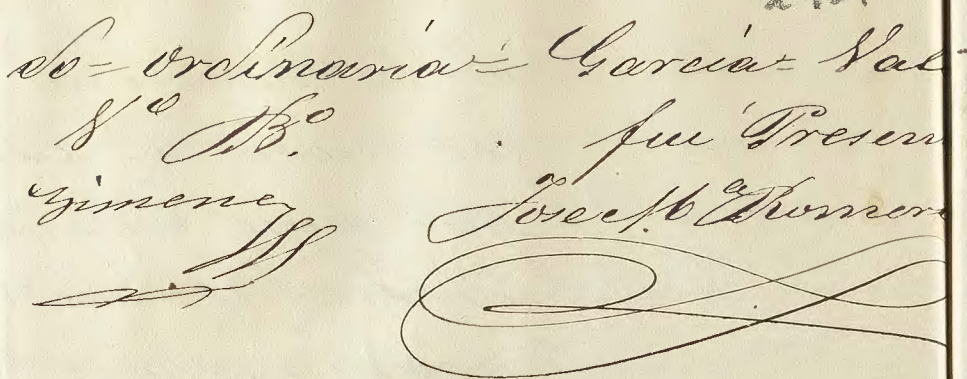 do = ordinaria = Garcia = Val
Vº Bº. fui Presen
Gimenez Jose Mª Romero